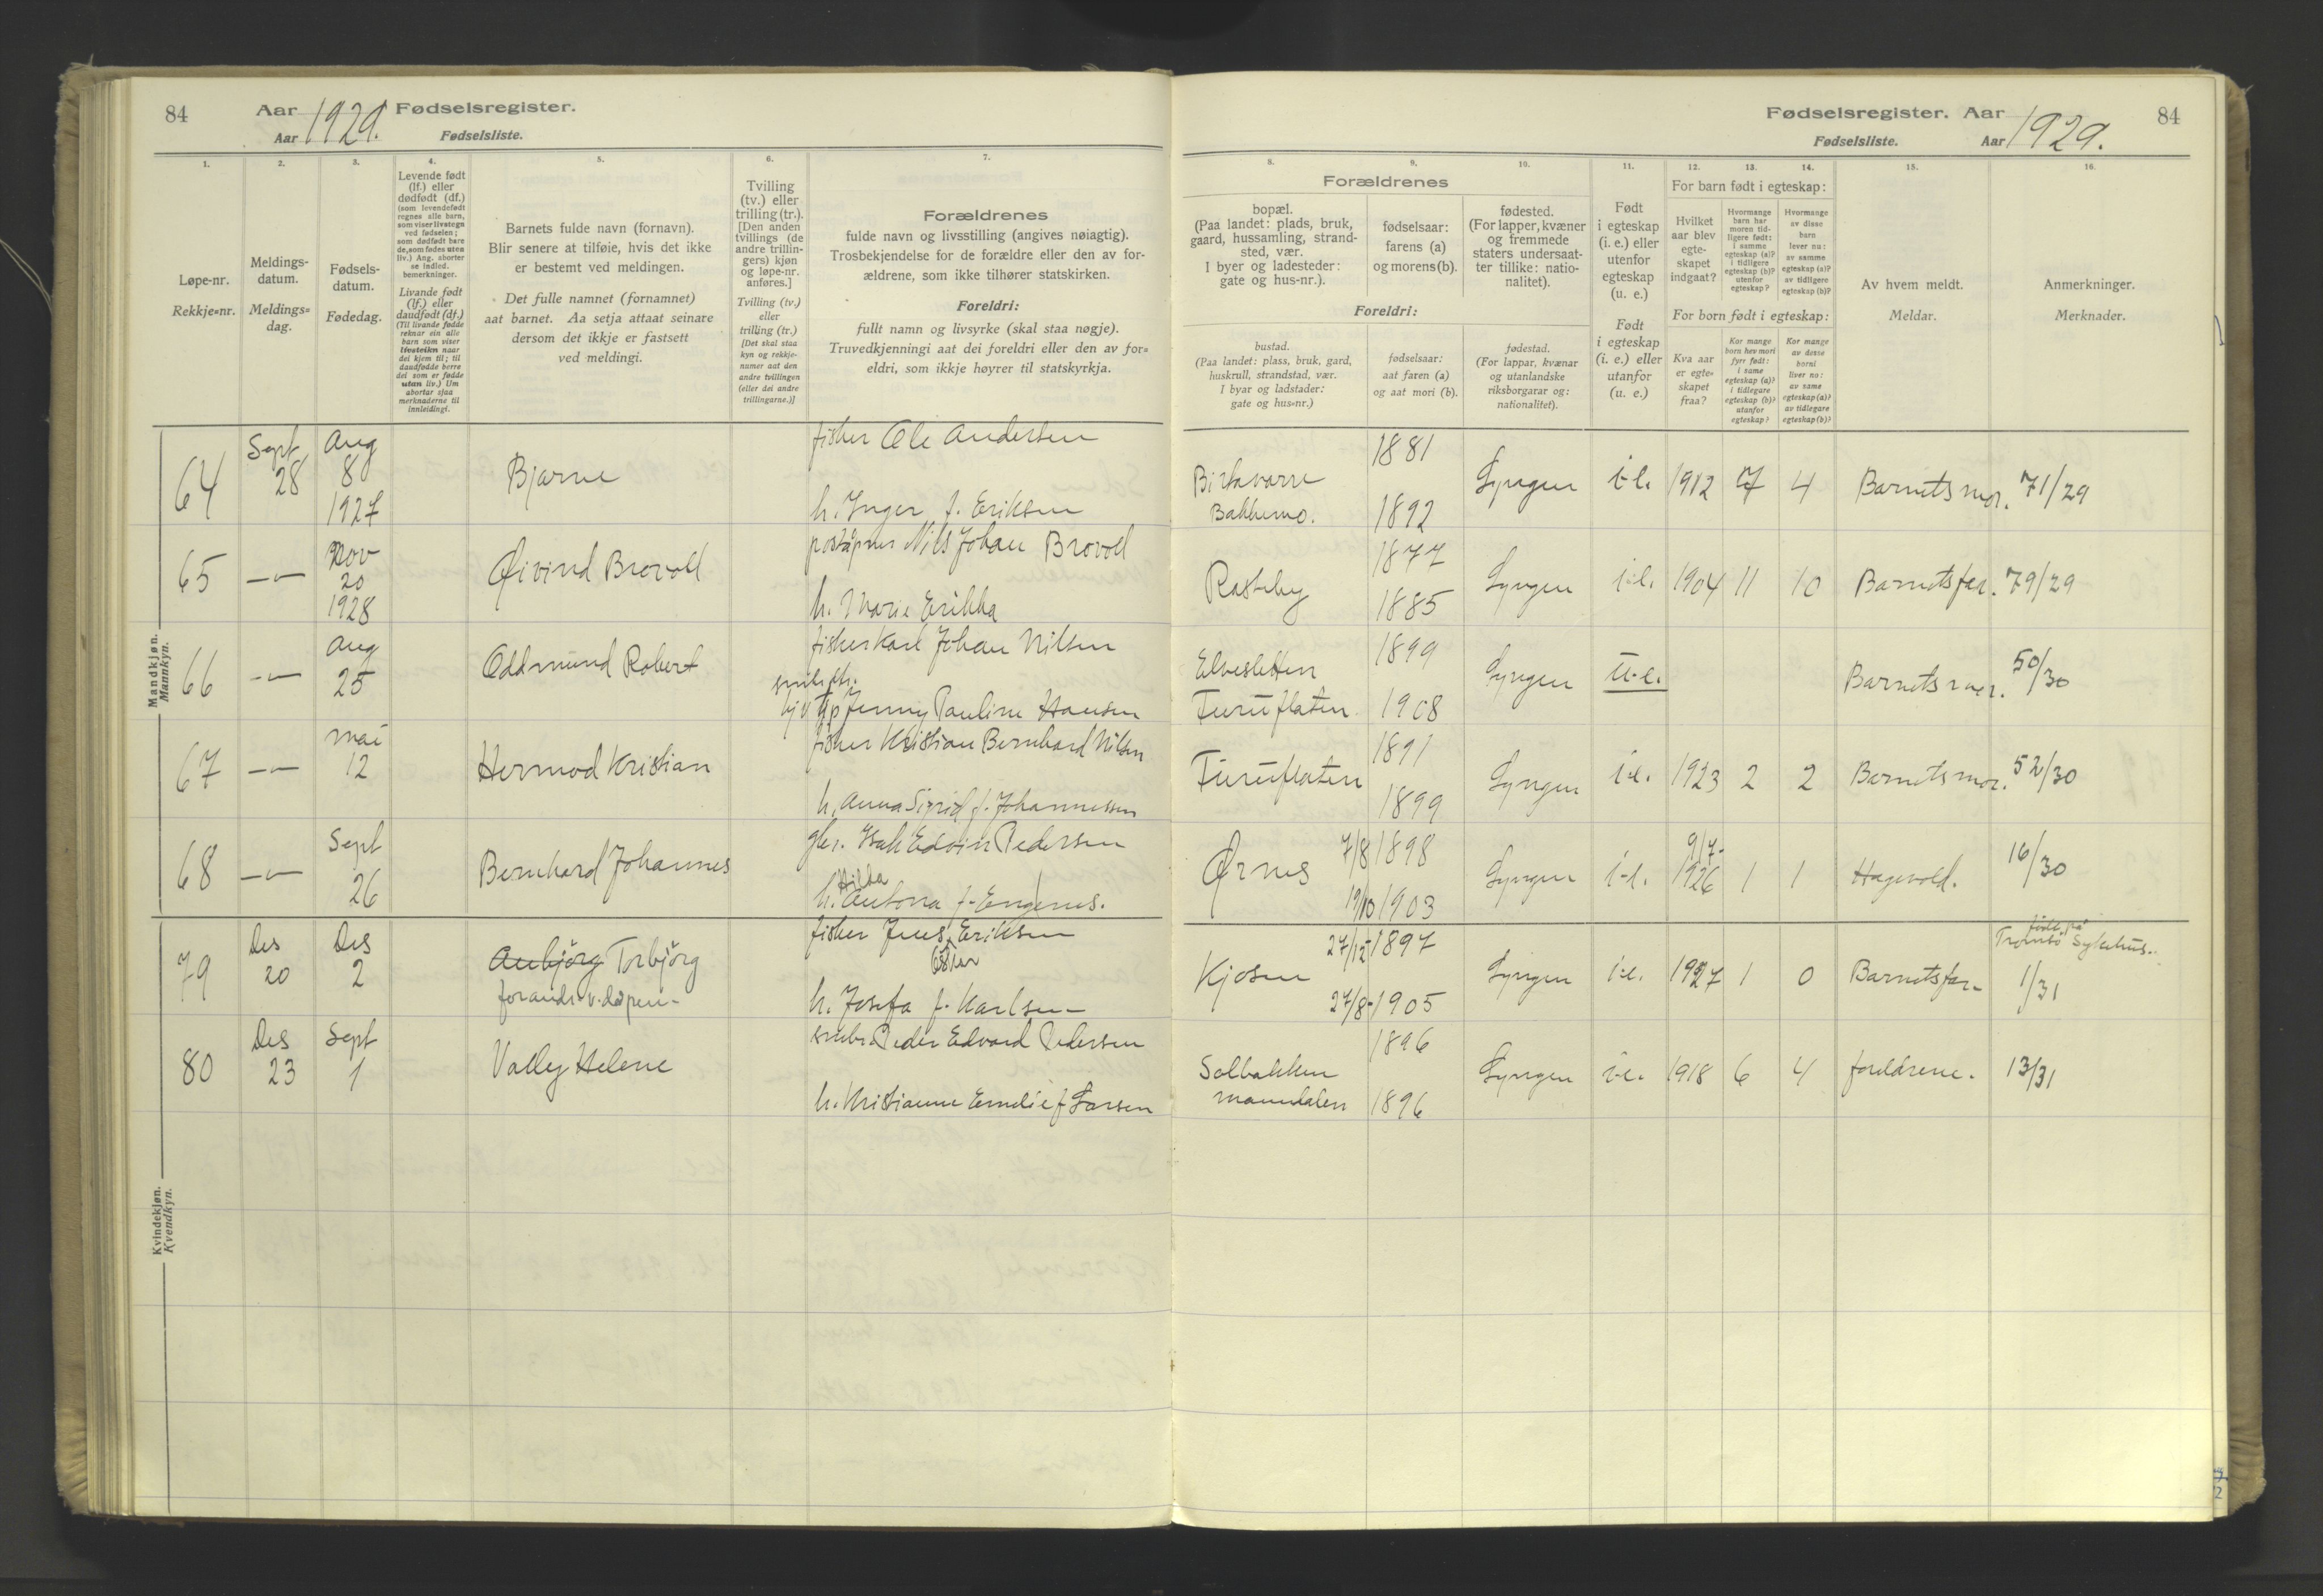 84 Aar 1929. Fødselsregister.
Aar Fødselsliste.
1. 2. 3. 4. 5. 6. 7.
Løpe-nr.
Rekkje=nr.
Meldings-
datum.
Meldings=
dag.
Fødsels-
datum.
Fødedag.
Levende født
(lf.) eller
dødfødt (df.)
(som levendefødt
regnes alle barn,
som viser livstegn
ved fødselen;
som dødfødt bare
de, som fødes uten
liv.) Ang. aborter
se indled.
bemerkninger.
Livande født
(lf.) eller
daudfødt (df.)
(Til livande fødde
reknar ein alle
barn som viser
livsteikn naar
dei kjem til; til
daudfødde berre
dei som er fødde
utan liv.) Um
abortar sjaa
merknaderne til
innleidingi.
Barnets fulde navn (fornavn).
Blir senere at tilføie, hvis det ikke
er bestemt ved meldingen.
Det fulle namnet (fornamnet)
aat barnet. Aa setja attaat seinare
dersom det ikkje er fastsett
ved meldingi.
Tvilling
(tv.) eller
trilling (tr.).
[Den anden
tvillings (de
andre trillin-
gers) kjøn
og løpe-nr.
anføres.]
Tvilling (tv.)
eller
trilling (tr.)
[Det skal staa
kyn og rekkje-
numer aat den
andre tvillingen
(eller dei andre
trillingarne.)]
Forældrenes
fulde navn og livsstilling (angives nøiagtig).
Trosbekjendelse for de forældre eller den av for-
ældrene, som ikke tilhører statskirken.
Foreldri:
fullt namn og livsyrke (skal staa nøgje).
Truvedkjenningi aat dei foreldri eller den av for=
eldri, som ikkje høyrer til statskyrkja.
Mandkjøn.
Mannkyn.
64 Sept 28 Aug 8 1927 Bjarne
fisker Ole Andersen
h. Inger f. Eriksen
65 —"— Nov 20 1928 Øivind Brovold
poståpner Nils Johan Brovold
h. Marie Erikka
66 —"— Aug 25 Oddmund Robert
fisker Karl Johan Nilsen
Jenny Pauline Hansen
67 —"— mai 12 Hermod Kristian
fisker Kristian Bernhard Nilsen
h. Anna Sigrid f. Johannessen
68 —"— Sept 26 Bernhard Johannes
gbr. Isak Edvin Pedersen
Hilda
h. Antona f. Engenes.
Kvindekjøn.
Kvendkyn.
79 Des 20 Des 2 Anbjörg Torbjörg
forandr. v. dåpen-
fisker Jens Eriksen
h. Josefa f. Karlsen-
80 Des 23 Sept 1 Valley Helene
småbr. Peder Edvard Pedersen
h. Kristianne Emelie f Larsen
Fødselsregister. Aar 1929. 84
Fødselsliste. Aar
8. 9. 10. 11. 12. 13. 14. 15. 16.
Forældrenes
bopæl.
(Paa landet: plads, bruk,
gaard, hussamling, strand-
sted, vær.
I byer og ladesteder:
gate og hus-nr.).
fødselsaar:
farens (a)
og morens (b).
fødested.
(For lapper, kvæner
og fremmede
staters undersaat-
ter tillike: natio-
nalitet).
Foreldri:
bustad.
(Paa landet: plass, bruk, gard,
huskrull, strandstad, vær.
I byar og ladstader:
gate og hus-nr.)
fødselsaar:
aat faren (a)
og aat mori (b).
fødestad.
(For lappar, kvænar
og utanlandske
riksborgarar og:
nationalitet).
Født
i egteskap
(i. e.) eller
utenfor
egteskap
(u. e.)
Født
i egteskap
(i. e.) eller
utanfor
(u. e.)
For barn født i egteskap:
Hvilket
aar blev
egte-
skapet
indgaat?
Hvormange
barn har
moren tid-
ligere født:
i samme
egteskap (a)?
i tidligere
egteskap (b)?
utenfor
egteskap?
Hvormange
av disse
barn
lever nu:
av samme
egteskap (a)?
av tidligere
egteskap (b)?
For born født i egteskap:
Kva aar
er egte=
skapet
fraa?
Kor mange
born hev mori
fyrr født:
i same
egteskap (a)?
i tidlegare
egteskap (b)?
utanfor
egteskap?
Kor mange
av desse
borni
liver no:
av same
egteskap (a)?
av tidlegare
egteskap (b)?
Av hvem meldt.
Meldar.
Anmerkninger.
Merknader.
Birtavarre
Bakkemo. 1881 1892 Lyngen i-e. 1912 7 4 Barnets mor. 71/29
Rasteby 1877 1885 Lyngen i-e. 1904 11 10 Barnets far. 79/29
Elvesletten
Furuflaten 1899 1908 Lyngen u-e. Barnets mor. 50/30
Furuflaten 1891 1899 Lyngen i-e. 1923 2 2 Barnets mor. 52/30
Ørnes 7/8 1898 19/10 1903 Lyngen i-e. 9/7- 1926 1 1 Hagevold. 16/30
Kjosen 27/12 1897 27/8-1905 Lyngen i-e. 1927 1 0 Barnets far- født på
Tromsø Sykehus.
1/31
Solbakken
Manndalen 1896 1896 Lyngen i-e. 1918 6 4 foreldrene. 13/31